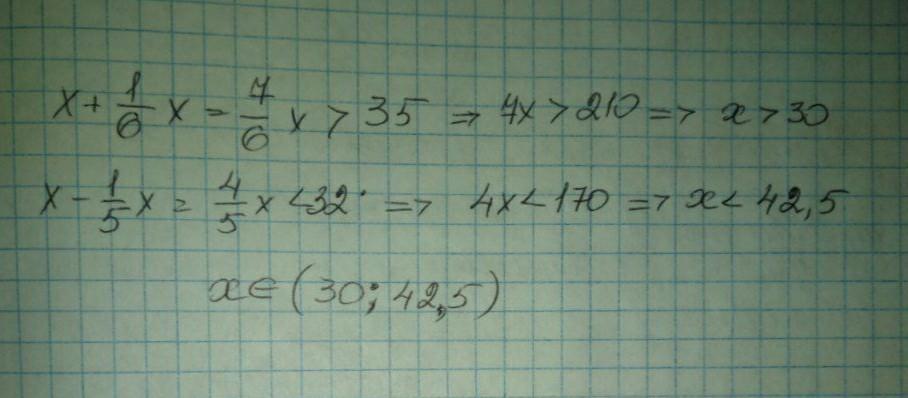 x + 1/6 x = 7/6 x > 35 => 7x > 210 => x > 30
x - 1/5 x = 4/5 x < 32 => 4x < 170 => x < 42,5
x ∈ (30; 42,5)